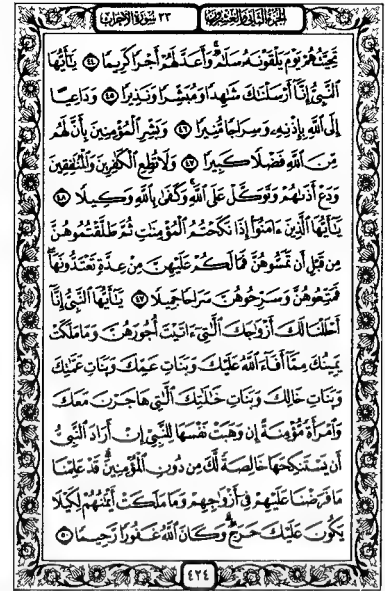 الجزء الثاني والعشرون ٣٣ سورة الأحزاب
تَحِيَّتُهُمْ يَوْمَ يَلْقَوْنَهُ سَلَامٌ وَأَعَدَّ لَهُمْ أَجْرًا كَرِيمًا ٤٤ يَٰٓأَيُّهَا
ٱلنَّبِىُّ إِنَّآ أَرْسَلْنَٰكَ شَٰهِدًا وَمُبَشِّرًا وَنَذِيرًا ٤٥ وَدَاعِيًا
إِلَى ٱللَّهِ بِإِذْنِهِۦ وَسِرَاجًا مُّنِيرًا ٤٦ وَبَشِّرِ ٱلْمُؤْمِنِينَ بِأَنَّ لَهُم
مِّنَ ٱللَّهِ فَضْلًا كَبِيرًا ٤٧ وَلَا تُطِعِ ٱلْكَٰفِرِينَ وَٱلْمُنَٰفِقِينَ
وَدَعْ أَذَىٰهُمْ وَتَوَكَّلْ عَلَى ٱللَّهِ وَكَفَىٰ بِٱللَّهِ وَكِيلًا ٤٨
يَٰٓأَيُّهَا ٱلَّذِينَ ءَامَنُوٓا۟ إِذَا نَكَحْتُمُ ٱلْمُؤْمِنَٰتِ ثُمَّ طَلَّقْتُمُوهُنَّ
مِن قَبْلِ أَن تَمَسُّوهُنَّ فَمَا لَكُمْ عَلَيْهِنَّ مِنْ عِدَّةٍ تَعْتَدُّونَهَا
فَمَتِّعُوهُنَّ وَسَرِّحُوهُنَّ سَرَاحًا جَمِيلًا ٤٩ يَٰٓأَيُّهَا ٱلنَّبِىُّ إِنَّآ
أَحْلَلْنَا لَكَ أَزْوَٰجَكَ ٱلَّٰتِىٓ ءَاتَيْتَ أُجُورَهُنَّ وَمَا مَلَكَتْ
يَمِينُكَ مِمَّآ أَفَآءَ ٱللَّهُ عَلَيْكَ وَبَنَاتِ عَمِّكَ وَبَنَاتِ عَمَّٰتِكَ
وَبَنَاتِ خَالِكَ وَبَنَاتِ خَٰلَٰتِكَ ٱلَّٰتِى هَاجَرْنَ مَعَكَ
وَٱمْرَأَةً مُّؤْمِنَةً إِن وَهَبَتْ نَفْسَهَا لِلنَّبِىِّ إِنْ أَرَادَ ٱلنَّبِىُّ
أَن يَسْتَنكِحَهَا خَالِصَةً لَّكَ مِن دُونِ ٱلْمُؤْمِنِينَ قَدْ عَلِمْنَا
مَا فَرَضْنَا عَلَيْهِمْ فِىٓ أَزْوَٰجِهِمْ وَمَا مَلَكَتْ أَيْمَٰنُهُمْ لِكَيْلَا
يَكُونَ عَلَيْكَ حَرَجٌ وَكَانَ ٱللَّهُ غَفُورًا رَّحِيمًا ٥٠
٤٢٤